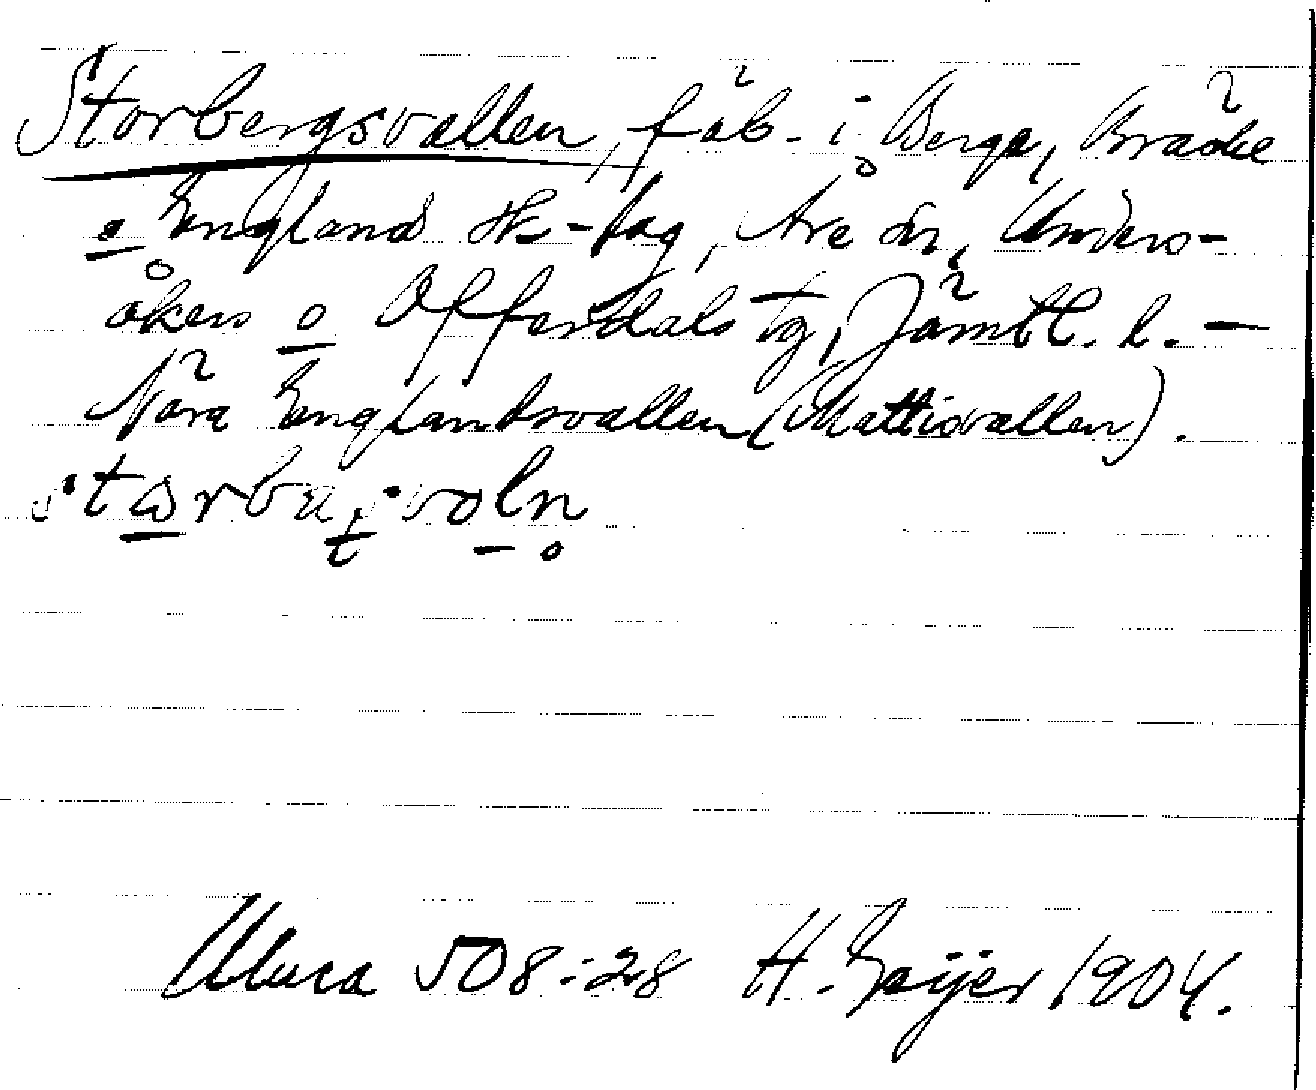 Storbergsvallen, fäb. i Berge, Bräcke
o England sk-lag, Åre sn, Unders-
åkers o Offerdals tg, Jämtl. l. —
Nära Englandsvallen (Mattisvallen).
ULMA 508:28 H. Geijer 1904.